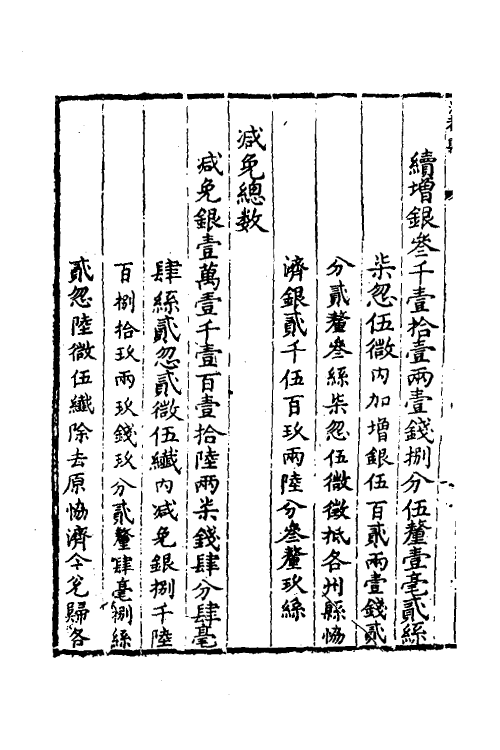 續增銀叁千壹拾壹兩壹錢捌分伍釐壹毫貳絲
柒忽伍微内加增銀伍百貳兩壹錢貳
分貳釐叁絲柒忽伍微徵抵各州縣協
濟銀貳千伍百玖兩陸分叁釐玖絲
减免總数
减免銀壹萬壹千壹百壹拾陸兩柒錢肆分肆毫
肆絲貳忽貳微伍纖内减免銀捌千陸
百捌拾玖兩玖錢玖分貳釐肆毫捌絲
貳忽陸微伍纖除去原協濟今兊歸各